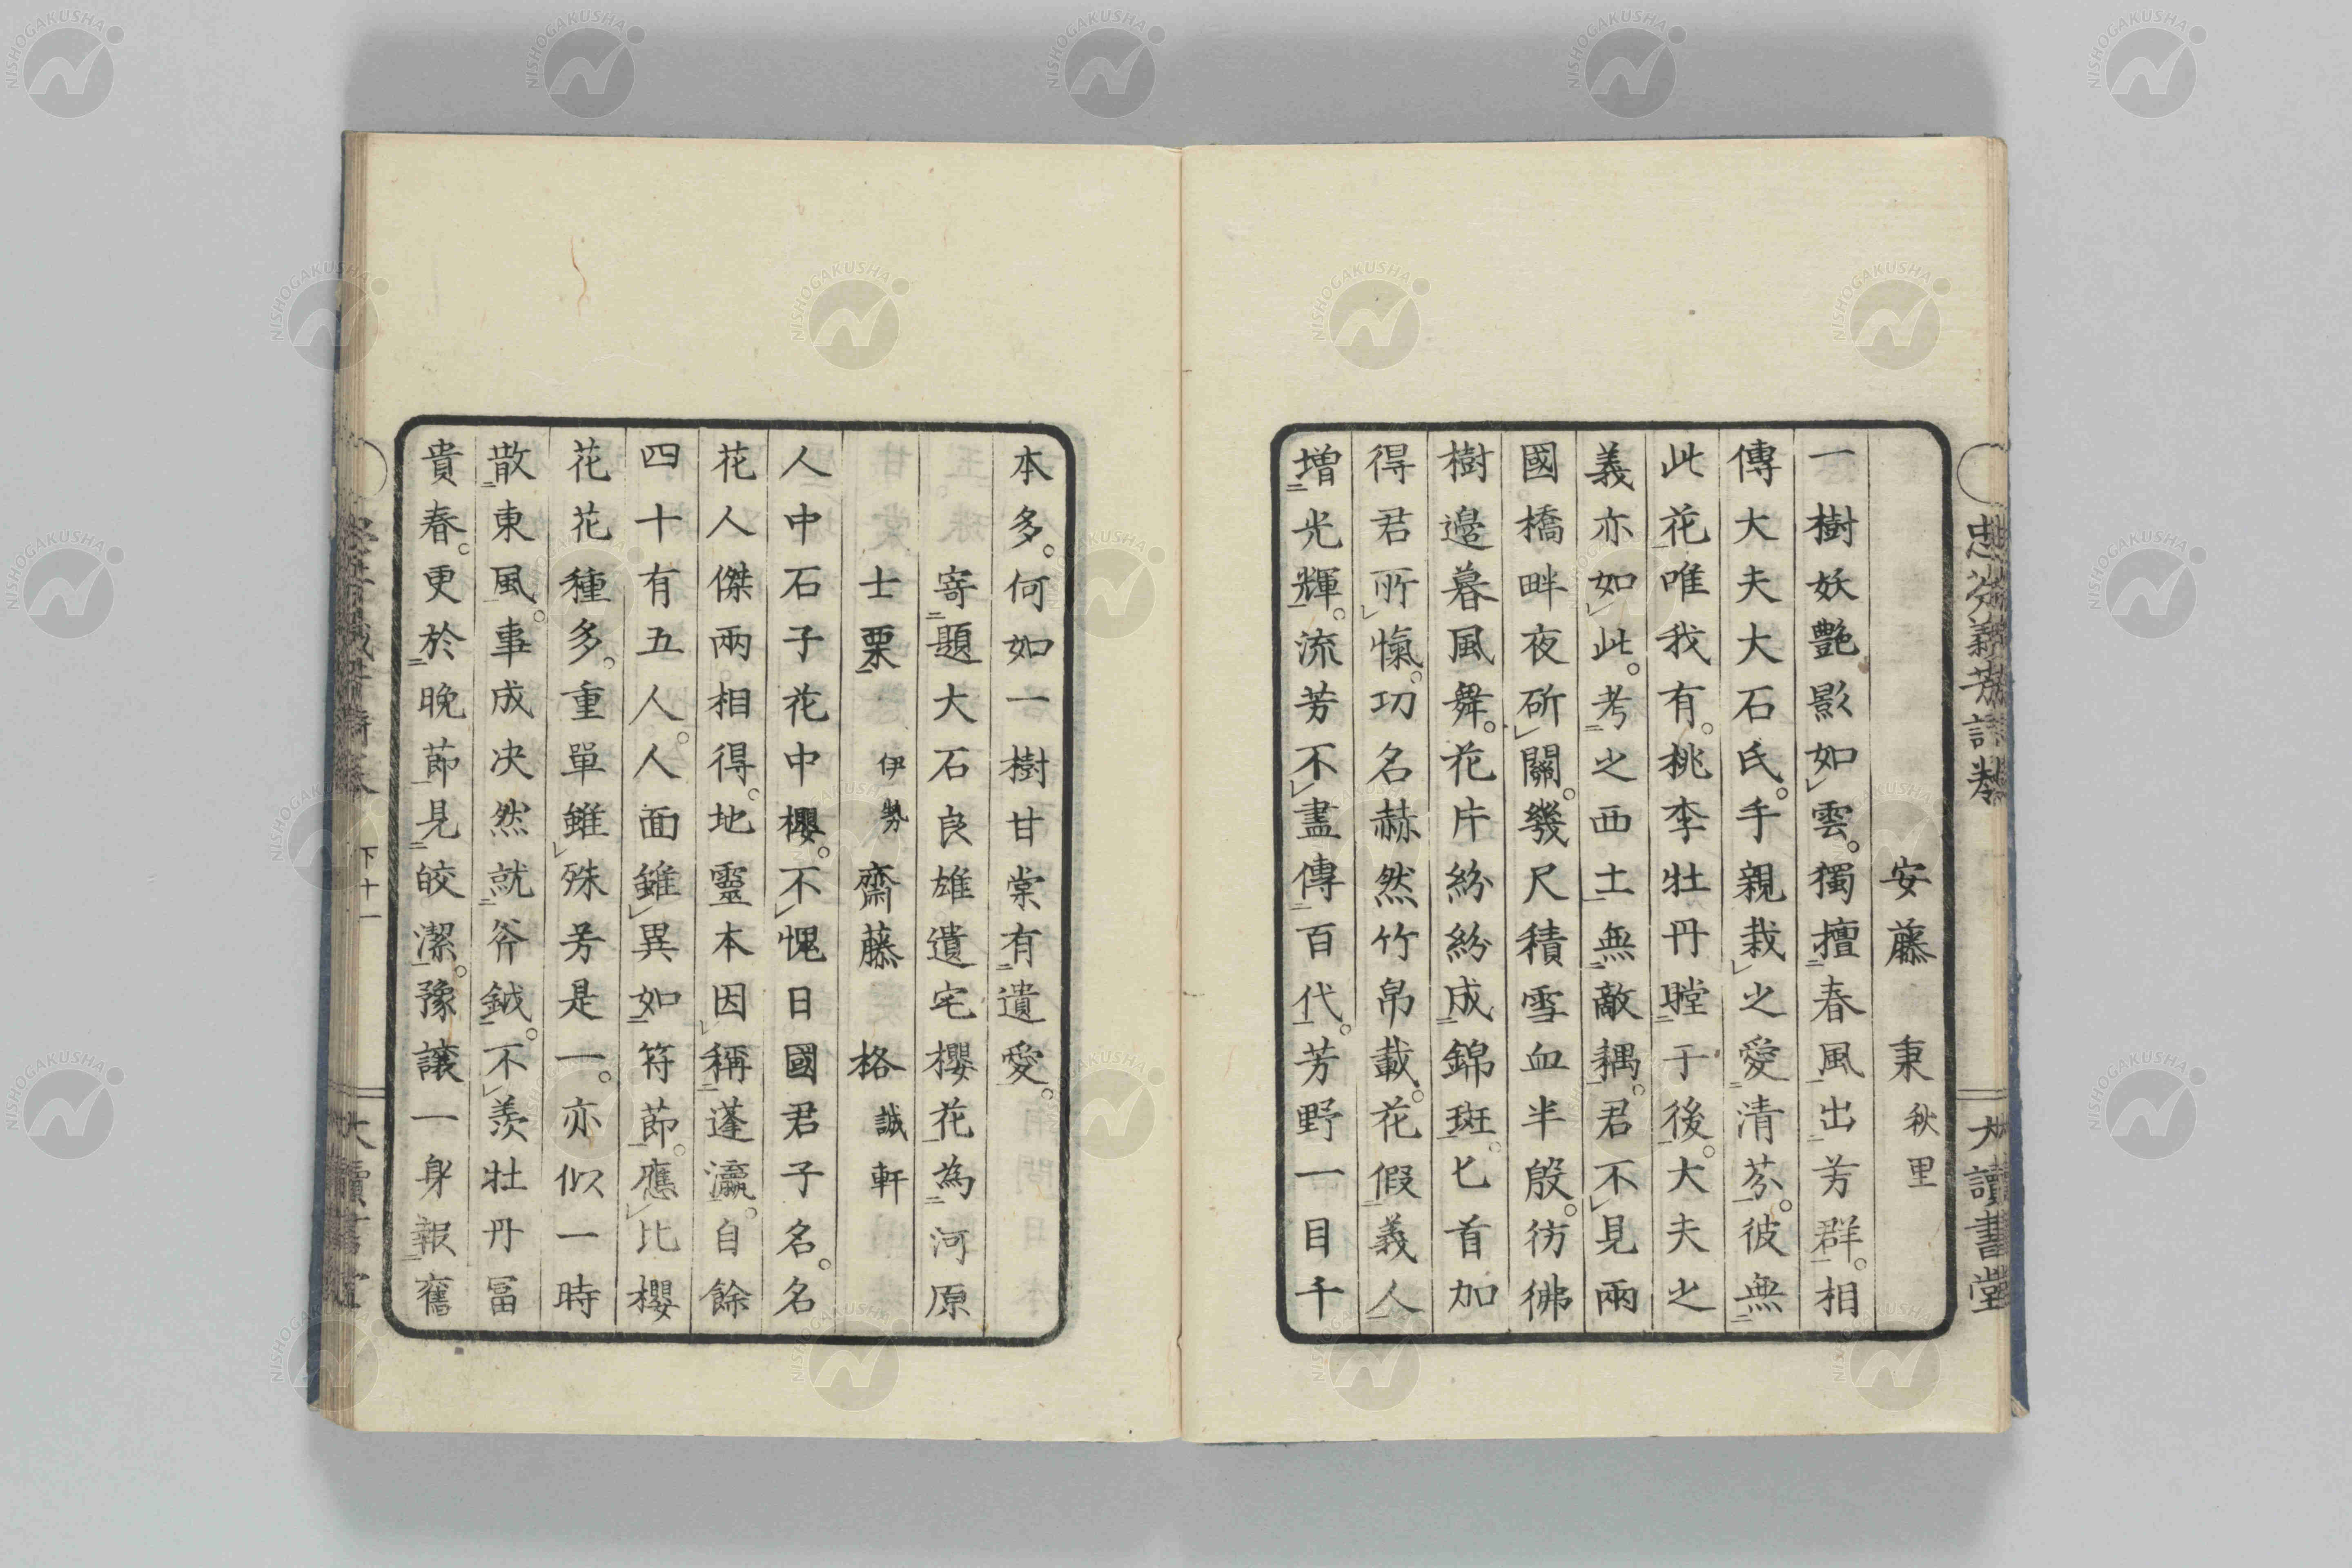 安藤 秉 秋里
一樹妖艶影如雲。獨擅春風出芳群。相
傳大夫大石氏。手親栽之愛清芬。彼無
此花唯我有。桃李牡丹瞠于後。大夫之
義亦如此。考之西土無敵耦。君不見兩
國橋畔夜斫關。幾尺積雪血半殷。彷彿
樹邉暮風舞。花片紛紛成錦斑。匕首加
得君所愾。功名赫然竹帛載。花假義人
増光輝。流芳不盡傳百代。芳野一目千
本多。何如一樹甘棠有遺愛。
寄題大石良雄遺宅櫻花為河原
士栗 伊勢 齋藤 格 誠軒
人中石子花中櫻。不愧日國君子名。名
花人傑兩相得。地靈本因稱蓬瀛。自餘
四十有五人。人面雖異如符節。應比櫻
花花種多。重單雖殊芳是一。亦似一時
散東風。事成决然就斧鉞。不羨牡丹冨
貴春。更於晩莭見皎潔。豫讓一身報舊
下十一
大讀書堂
NISHOGAKUSHA